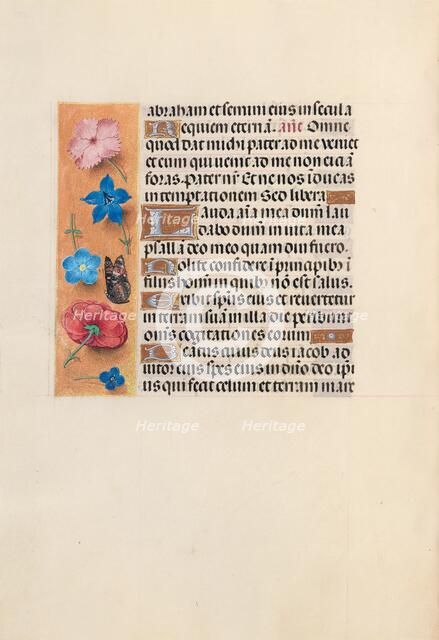 abraham et semini eius in secula
Requiem eternā. añe Omne
quod dat michi pater ad me veniet
et eum qui uenit ad me non eiciā
foras. Pater nr̄ Et ne nos īducas
in temptationem Sed libera
Lauda aīa mea dnm̄ lau
dabo dnm̄ in uita mea
psallā deo meo quam diu fuero.
Nolite confidere ī principibꝰ ī
filijs hominū in quibꝰ nō est salus.
Exibit spūs eius et reuertetur
in terram suā in illa die peribunt
omīs cogitationes eorum
Beatus cuius deus iacob ad
iutor eius spes eius in dnō deo ipī
us qui fecit celum et terram mare
Heritage
Heritage
Heritage
Heritage
Heritage
Heritage
Heritage